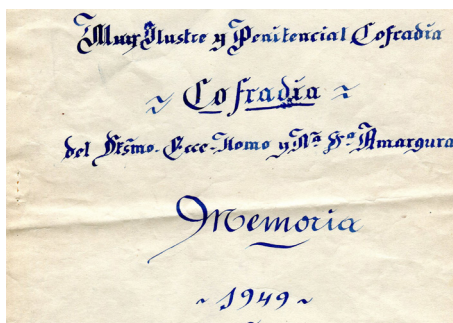 Muy Ilustre y Penitencial Cofradía
~ Cofradía ~
del Stsmo. Ecce-Homo y Nª Sª Amargura
Memoria
~ 1949 ~